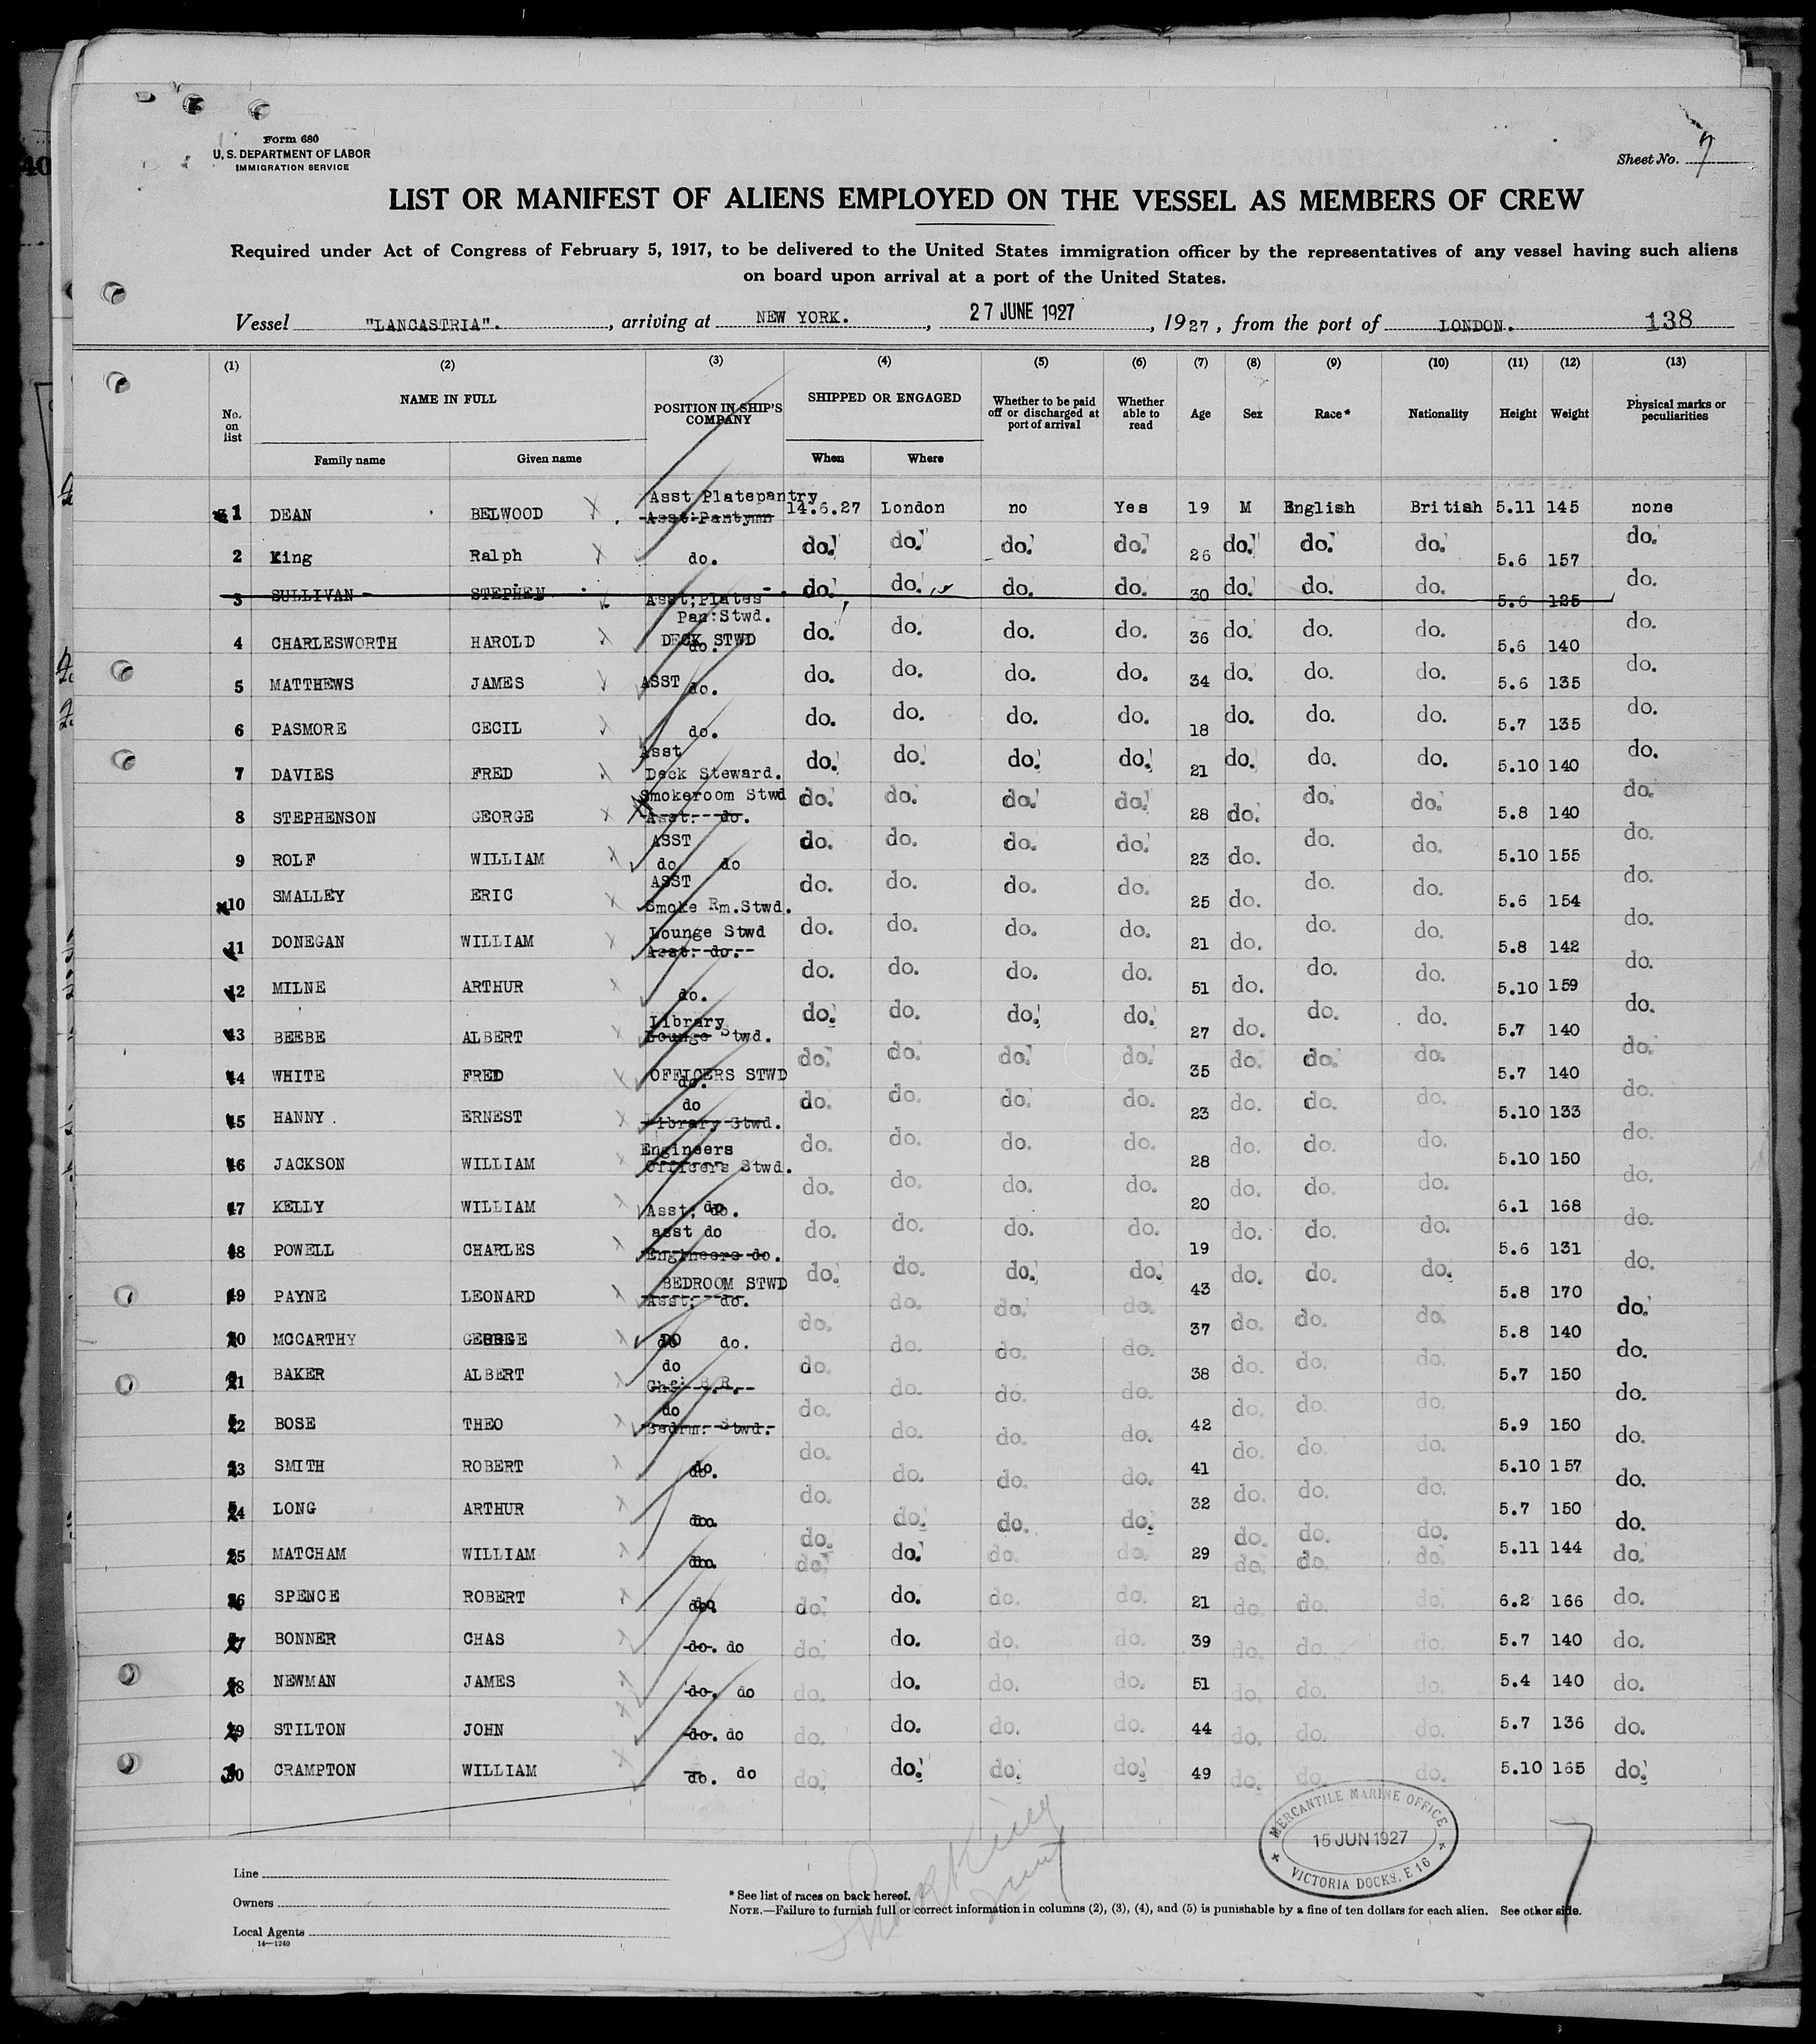 Form 680
U. S. DEPARTMENT OF LABOR
IMMIGRATION SERVICE
Sheet No. 7
LIST OR MANIFEST OF ALIENS EMPLOYED ON THE VESSEL AS MEMBERS OF CREW
Required under Act of Congress of February 5, 1917, to be delivered to the United States immigration officer by the representatives of any vessel having such aliens
on board upon arrival at a port of the United States.
Vessel "LANCASTRIA". , arriving at NEW YORK. , 27 JUNE 1927 , 1927, from the port of LONDON. 138
(1) (2) (3) (4) (5) (6) (7) (8) (9) (10) (11) (12) (13)
No. on list NAME IN FULL POSITION IN SHIP'S COMPANY SHIPPED OR ENGAGED Whether to be paid off or discharged at port of arrival Whether able to read Age Sex Race* Nationality Height Weight Physical marks or peculiarities
Family name Given name When Where
1 DEAN BELWOOD Asst Platepantry Asst:Pantymn 14.6.27 London no Yes 19 M English British 5.11 145 none
2 King Ralph do. do. do. do. do. 26 do. do. do. 5.6 157 do.
3 SULLIVAN STEPHEN Asst;Plates do. do. do. do. 30 do. do. do. 5.6 125 do.
Pan:Stwd.
4 CHARLESWORTH HAROLD DECK STWD do. do. do. do. do. 36 do. do. do. 5.6 140 do.
5 MATTHEWS JAMES ASST do. do. do. do. do. 34 do. do. do. 5.6 135 do.
6 PASMORE CECIL do. do. do. do. do. 18 do. do. do. 5.7 135 do.
7 DAVIES FRED Asst Deck Steward. do. do. do. do. 21 do. do. do. 5.10 140 do.
8 STEPHENSON GEORGE Smokeroom Stwd Asst. do. do. do. do. do. 28 do. do. do. 5.8 140 do.
9 ROLF WILLIAM ASST do do do. do. do. do. 23 do. do. do. 5.10 155 do.
10 SMALLEY ERIC ASST Smoke Rm.Stwd. do. do. do. do. 25 do. do. do. 5.6 154 do.
11 DONEGAN WILLIAM Lounge Stwd Asst. do. do. do. do. do. 21 do. do. do. 5.8 142 do.
12 MILNE ARTHUR do. do. do. do. do. 51 do. do. do. 5.10 159 do.
13 BEEBE ALBERT Library Lounge Stwd. do. do. do. do. 27 do. do. do. 5.7 140 do.
14 WHITE FRED OFFICERS STWD do. do. do. do. do. 35 do. do. do. 5.7 140 do.
15 HANNY. ERNEST do Library Stwd. do. do. do. do. 23 do. do. do. 5.10 133 do.
16 JACKSON WILLIAM Engineers Officers Stwd. do. do. do. do. 28 do. do. do. 5.10 150 do.
17 KELLY WILLIAM Asst; do. do. do. do. do. 20 do. do. do. 6.1 168 do.
18 POWELL CHARLES asst do Engineers do. do. do. do. do. 19 do. do. do. 5.6 131 do.
19 PAYNE LEONARD BEDROOM STWD Asst; do. do. do. do. do. 43 do. do. do. 5.8 170 do.
20 MCCARTHY GEORGE DO do. do. do. do. do. 37 do. do. do. 5.8 140 do.
21 BAKER ALBERT do B.R. do. do. do. do. 38 do. do. do. 5.7 150 do.
22 BOSE THEO do Bedrm. Stwd. do. do. do. do. 42 do. do. do. 5.9 150 do.
23 SMITH ROBERT do. do. do. do. do. 41 do. do. do. 5.10 157 do.
24 LONG ARTHUR do. do. do. do. do. 32 do. do. do. 5.7 150 do.
25 MATCHAM WILLIAM do. do. do. do. do. 29 do. do. do. 5.11 144 do.
26 SPENCE ROBERT do. do. do. do. do. 21 do. do. do. 6.2 166 do.
27 BONNER CHAS do. do do. do. do. do. 39 do. do. do. 5.7 140 do.
28 NEWMAN JAMES do. do do. do. do. do. 51 do. do. do. 5.4 140 do.
29 STILTON JOHN do. do do. do. do. do. 44 do. do. do. 5.7 136 do.
30 CRAMPTON WILLIAM do. do do. do. do. do. 49 do. do. do. 5.10 165 do.
MERCANTILE MARINE OFFICE
15 JUN 1927
VICTORIA DOCKS. E 16
7
Line
Owners
Local Agents
14—1240
* See list of races on back hereof.
NOTE.—Failure to furnish full or correct information in columns (2), (3), (4), and (5) is punishable by a fine of ten dollars for each alien. See other side.